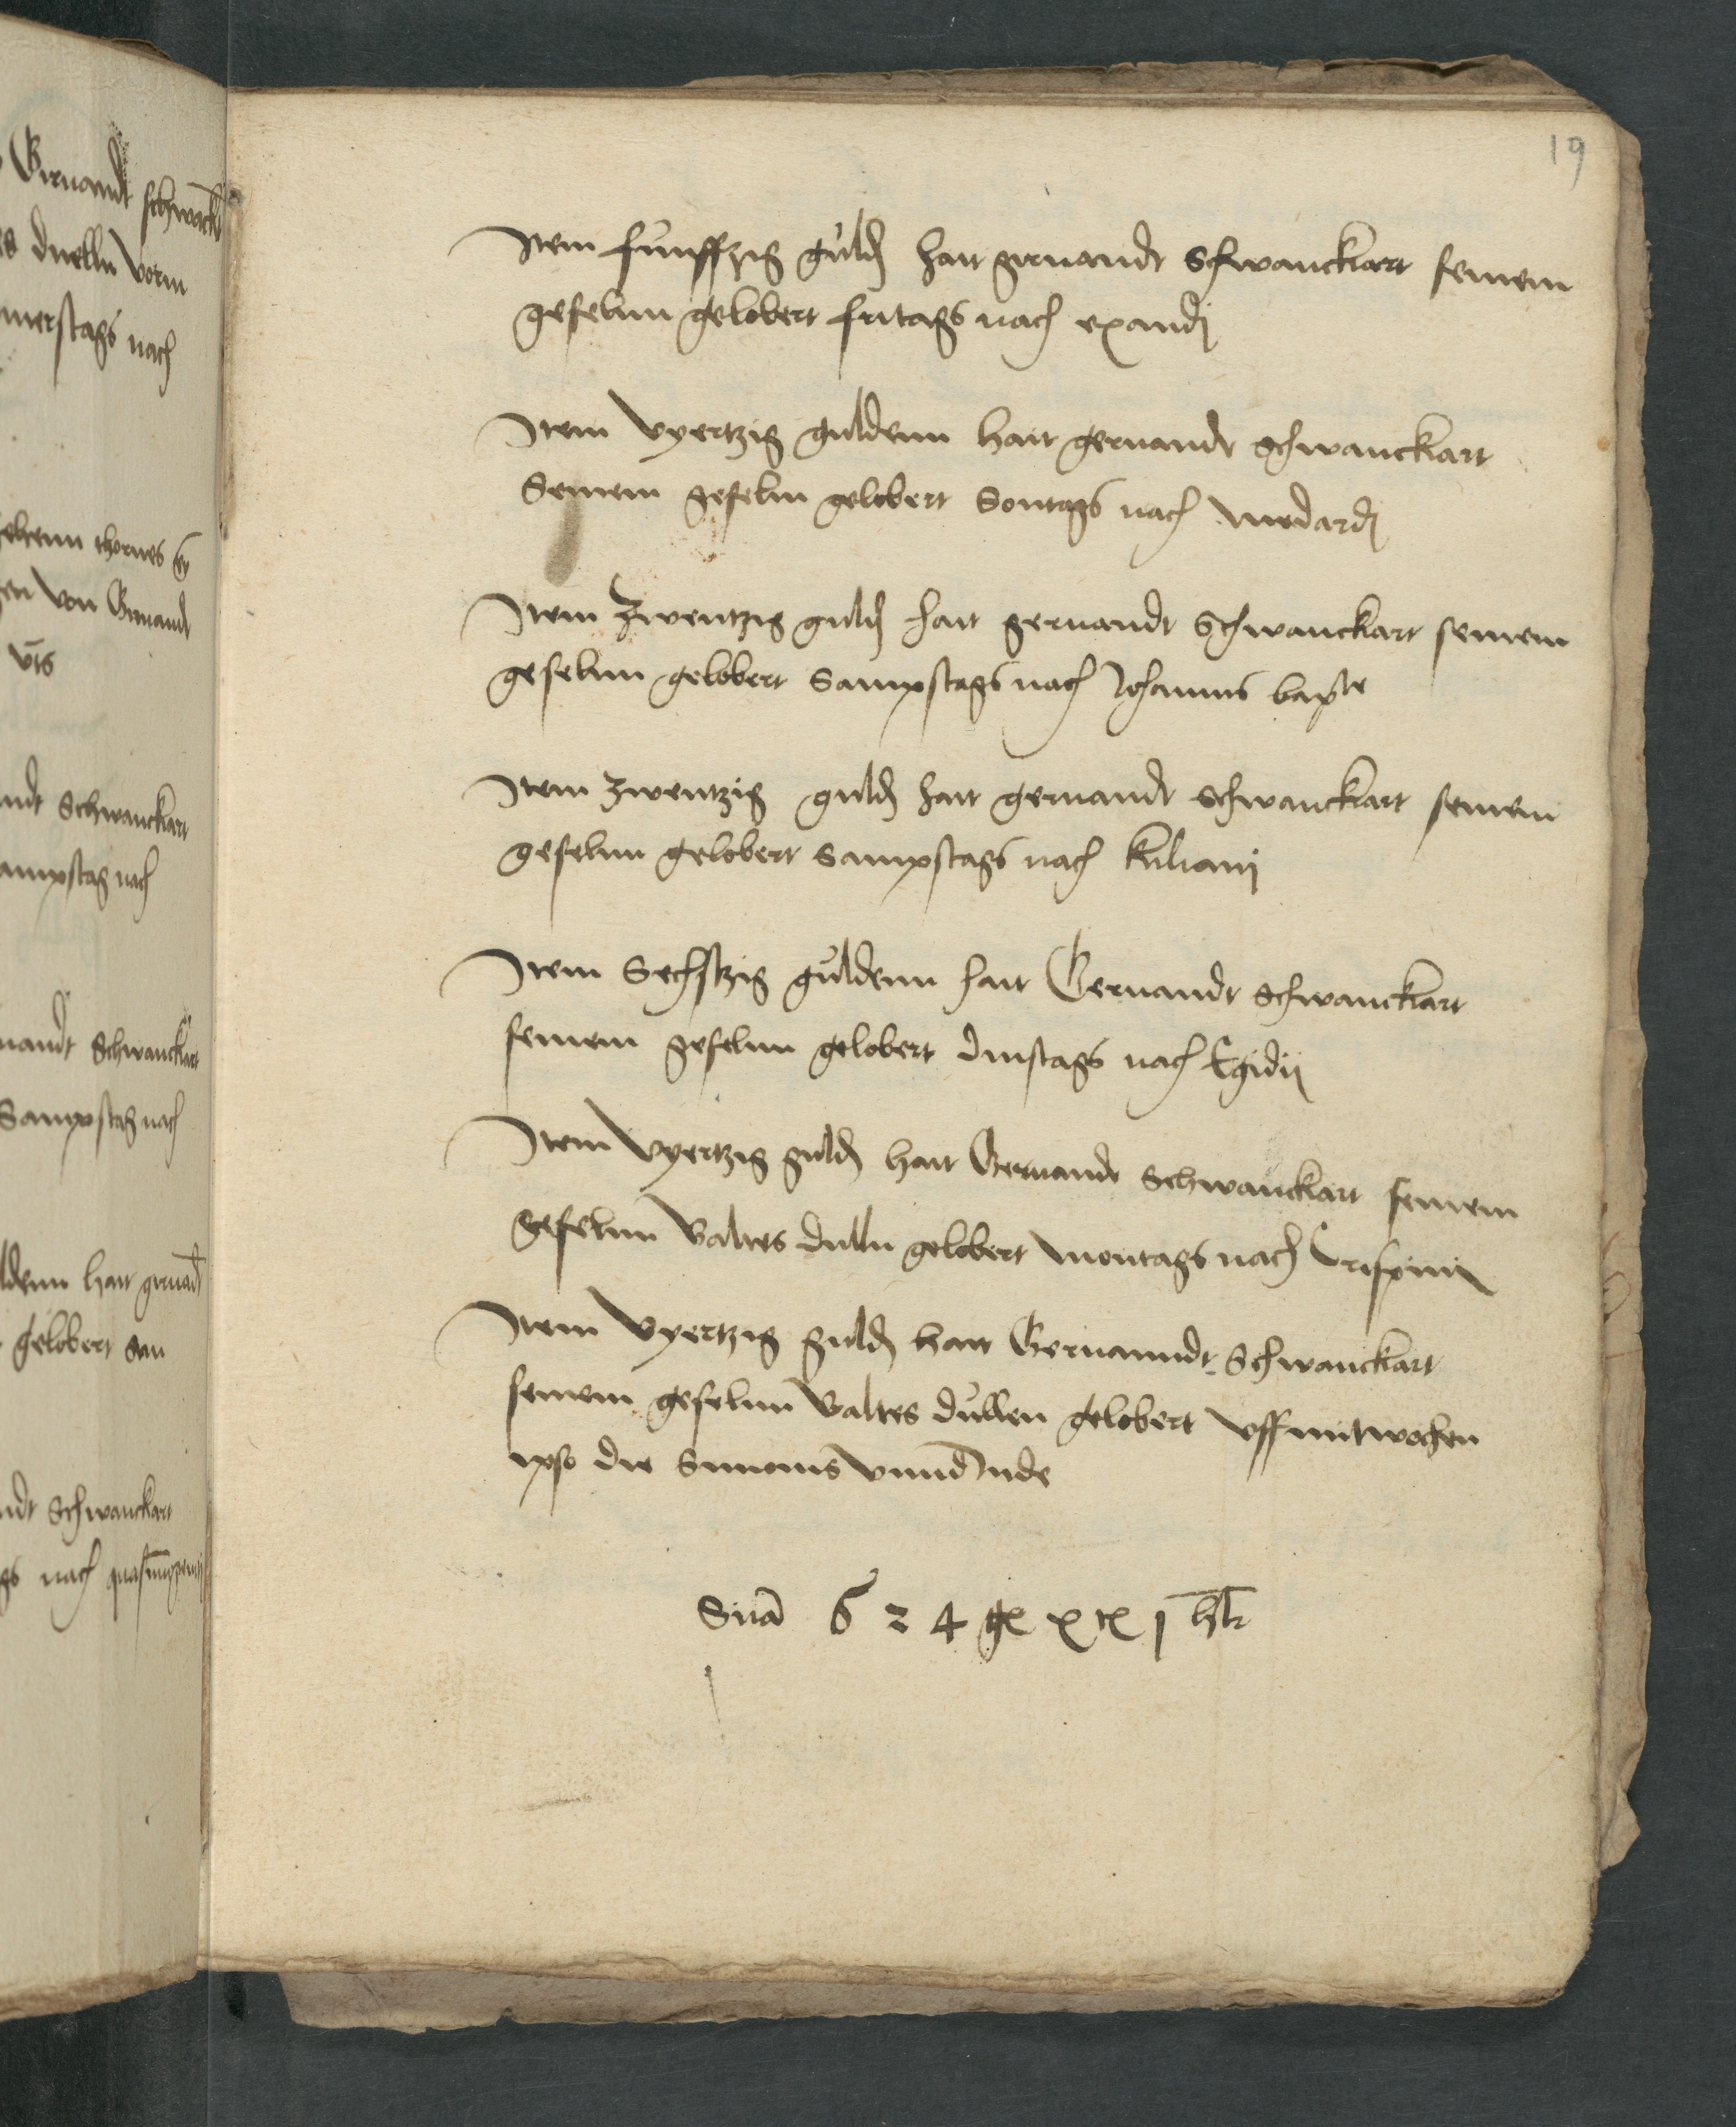 19
Item funffzig guld hait gernandt Schwanckart seinem
geselnn gelobert fritags nach exaudj
Item vyertzig guldenn hait gernandt Schwanckart
Seinem geselnn gelobert Sontags nach medardj
Item zwentzig guld hait gernandt Schwanckart seinem
geselnn gelobert Sampstags nach Johannis bapte
Item zwentzig guld hait gernandt Schwanckart seinem
geselnn gelobert Sampstags nach kilianj
Item Sechstzig guldenn hait Gernandt Schwanckart
seinem geselnn gelobert dinstags nach Egidij
Item vyertzig guld hait Gernandt Schwanckart seinem
geselnn Baltes dulln gelobert montags nach Crispinij
Item vyertzig guld hait Gernanndt Schwanckart
seinem geselnn Baltes dullen gelobert vff mitwochen
ipso die Simonis vnnd Jude
Suma 624 g x j hlr
Gernandt schwanck
duelln vorm
nach
thornes
von Gernandt
vts
Schwanckart
sampstag nach
nandt Schwanckart
Sampstag nach
ldenn hait
gelobert am
ndt Schwanckart
gs nach